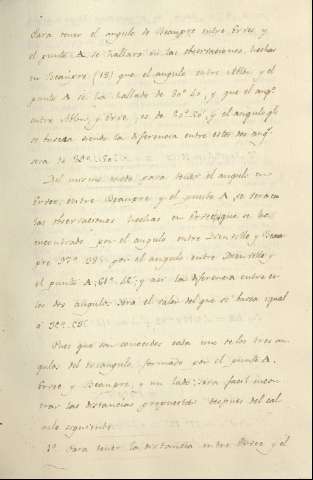 Para tener el angulo de Beaupre entre Ervee, y
el punto A. se hallara en las observaciones hechas
en Beaupre (18) que el angulo entre y el
punto A se ha hallado de 80° 40, y que el ang.
entre y Ervee, es de 20° 50', y el angulo qe
se busca siendo la diferencia entre estos dos ang.
sera de
Del mismo modo para tener el angulo en
Ervee, entre Beaupre y el punto A, se veran
las observaciones hechas en Ervee, que se ha
encontrado por el angulo entre y Beau
pre 97° por el angulo entre y
el punto A; y asi la diferencia entre es
los dos angulos sera el valor del que se busca igual
á
Pues que son conocidos cada uno de los tres an
gulos del triangulo formado por el punto A.
Ervee y Beaupre, y un lado; sera facil encon
trar las distancias propuestas despues del cal
culo siguiente.
1° Para tener la distancia entre Ervee y el